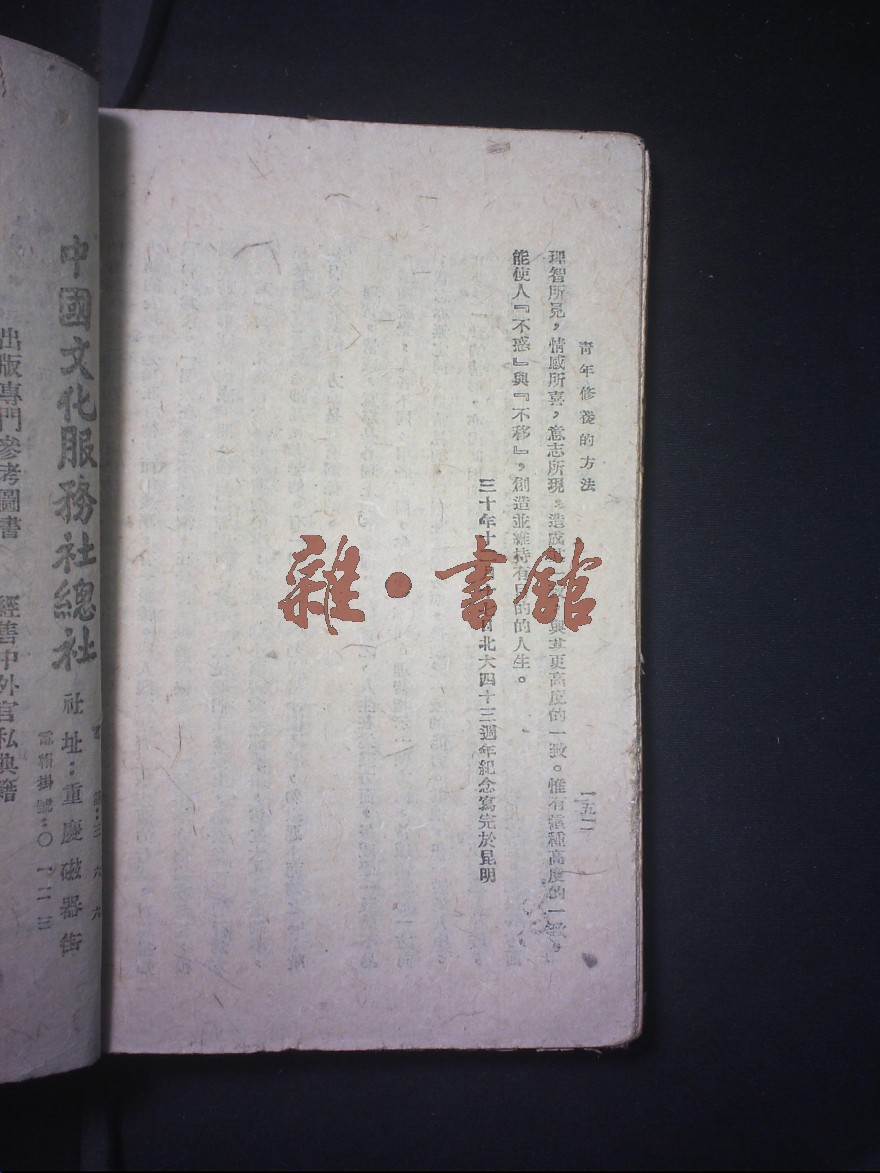 青年修養的方法 一五二
理智所見，情感所喜，意志所現，造成 與其更高度的一致。惟有這種高度的一致，
能使人『不惑』與『不移』，創造並維持有目的的人生。
三十年十 日北大四十三週年紀念寫完於昆明
雜·書館
三六六
中國文化服務社總社 社址：重慶磁器街
電報掛號：〇一二三
出版專門參考圖書 經售中外官私典籍